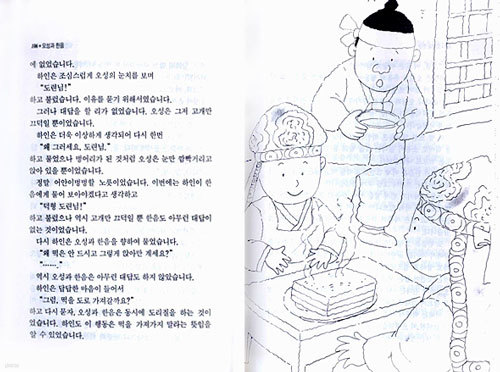 오성과 한음
에 없었습니다.
하인은 조심스럽게 오성의 눈치를 보며
"도련님!"
하고 불렀습니다. 이유를 묻기 위해서였습니다.
그러나 대답을 할 리가 없었습니다. 오성은 그저 고개만
끄덕일 뿐이었습니다.
하인은 더욱 이상하게 생각되어 다시 한번
"왜 그러세요, 도련님."
하고 물었으나 벙어리가 된 것처럼 오성은 눈만 깜빡거리고
앉아 있을 뿐이었습니다.
정말 어안이벙벙할 노릇이었습니다. 이번에는 하인이 한
음에게 물어 보아야겠다고 생각하고
"덕형 도련님!"
하고 불렀으나 역시 고개만 끄덕일 뿐 한음도 아무런 대답이
없는 것이었습니다.
다시 하인은 오성과 한음을 향하여 물었습니다.
"왜 떡은 안 드시고 그렇게 앉아만 계세요?"
"……."
역시 오성과 한음은 아무런 대답도 하지 않았습니다.
하인은 답답한 마음이 들어서
"그럼, 떡을 도로 가져갈까요?"
하고 다시 묻자, 오성과 한음은 동시에 도리질을 하는 것이
었습니다. 하인도 이 행동은 떡을 가져가지 말라는 뜻임을
알 수 있었습니다.